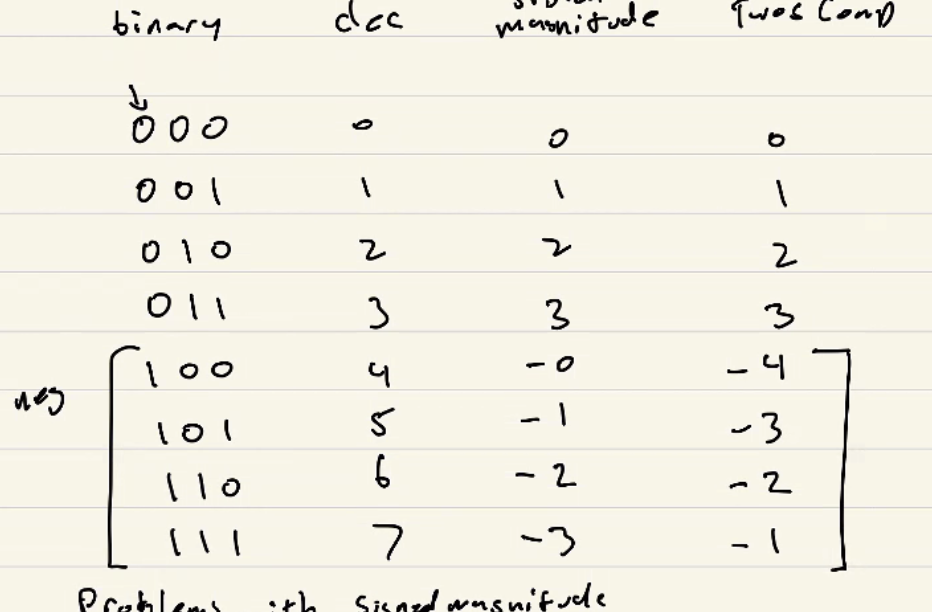 binary dec magnitude Twos Comp
000 0 0 0
001 1 1 1
010 2 2 2
011 3 3 3
100 4 -0 -4
neg
101 5 -1 -3
110 6 -2 -2
111 7 -3 -1
Problems signed magnitude